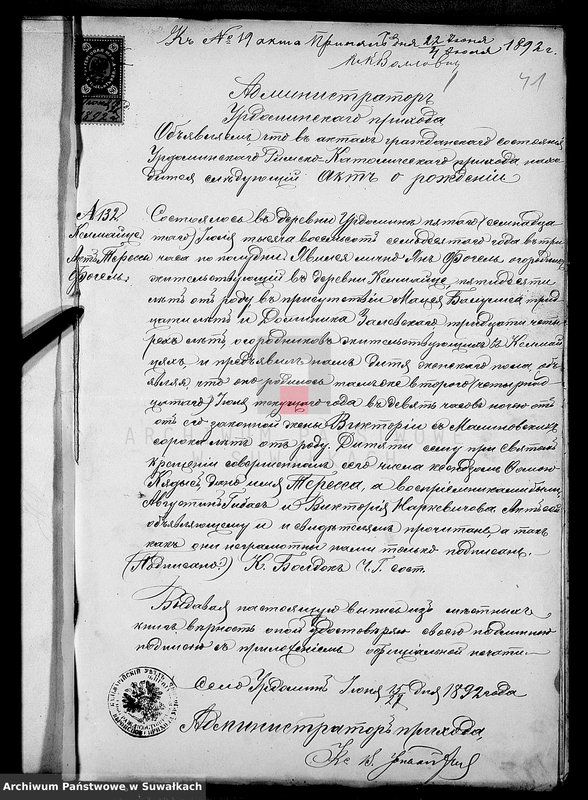 Къ № 19 акта Принялъ дня 22 Июня 1892 г.
41
Администраторъ
Урдоминскаго прихода
Объявляемъ, что въ актахъ гражданскаго состоянія
Урдоминскаго Римско-Католическаго прихода нахо-
дится слѣдующій Актъ о рожденіи
№ 132
Терессы
Фрогель
Состоялось въ деревни Урдоминъ пятаго (семнадца-
таго) Іюня тысяча восемьсотъ семьдесятаго года въ три
часа по полудни. Явился лично Янъ Фрогель огородникъ
жительствующій въ деревни пятидесяти
лѣтъ отъ роду въ присутствіи Мацея трид-
цати лѣтъ и Доминика Залевскаго тридцати четы-
рехъ лѣтъ огородниковъ жительствующихъ въ
и предъявилъ намъ дитя женскаго пола, объ-
являя что оно родилось тамъ же второго (четырнад-
цатаго) Іюня текущаго года въ девять часовъ ночью отъ
отъ его законной жены Викторіи съ Малиновскихъ
сорока лѣтъ отъ роду. Дитяти сему при святомъ
крещеніи совершенномъ сего числа ксендзомъ
дано имя Тересса, а воспріемниками были
Августинъ и Викторія Наркевичова. Актъ сей
объявляющему и свидѣтелямъ прочитанъ, а такъ
какъ они неграмотны нами только подписанъ.
(Подписалъ) К. Болдокъ Ч. Г. сост.
Выдавая настоящую выпись изъ мѣстныхъ
книгъ, вѣрность оной удостовѣряю своею подлинною
подписью съ приложеніемъ оффиціальной печати.
Село Урдоминъ Іюня дня 1892 года
Администраторъ прихода
Кс
ARCHIWUM PAŃSTWOWE
W SUWAŁKACH
Archiwum Państwowe w Suwałkach